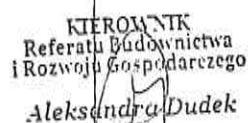 KIEROWNIK
Referatu Budownictwa
i Rozwoju Gospodarczego
Aleksandra Dudek